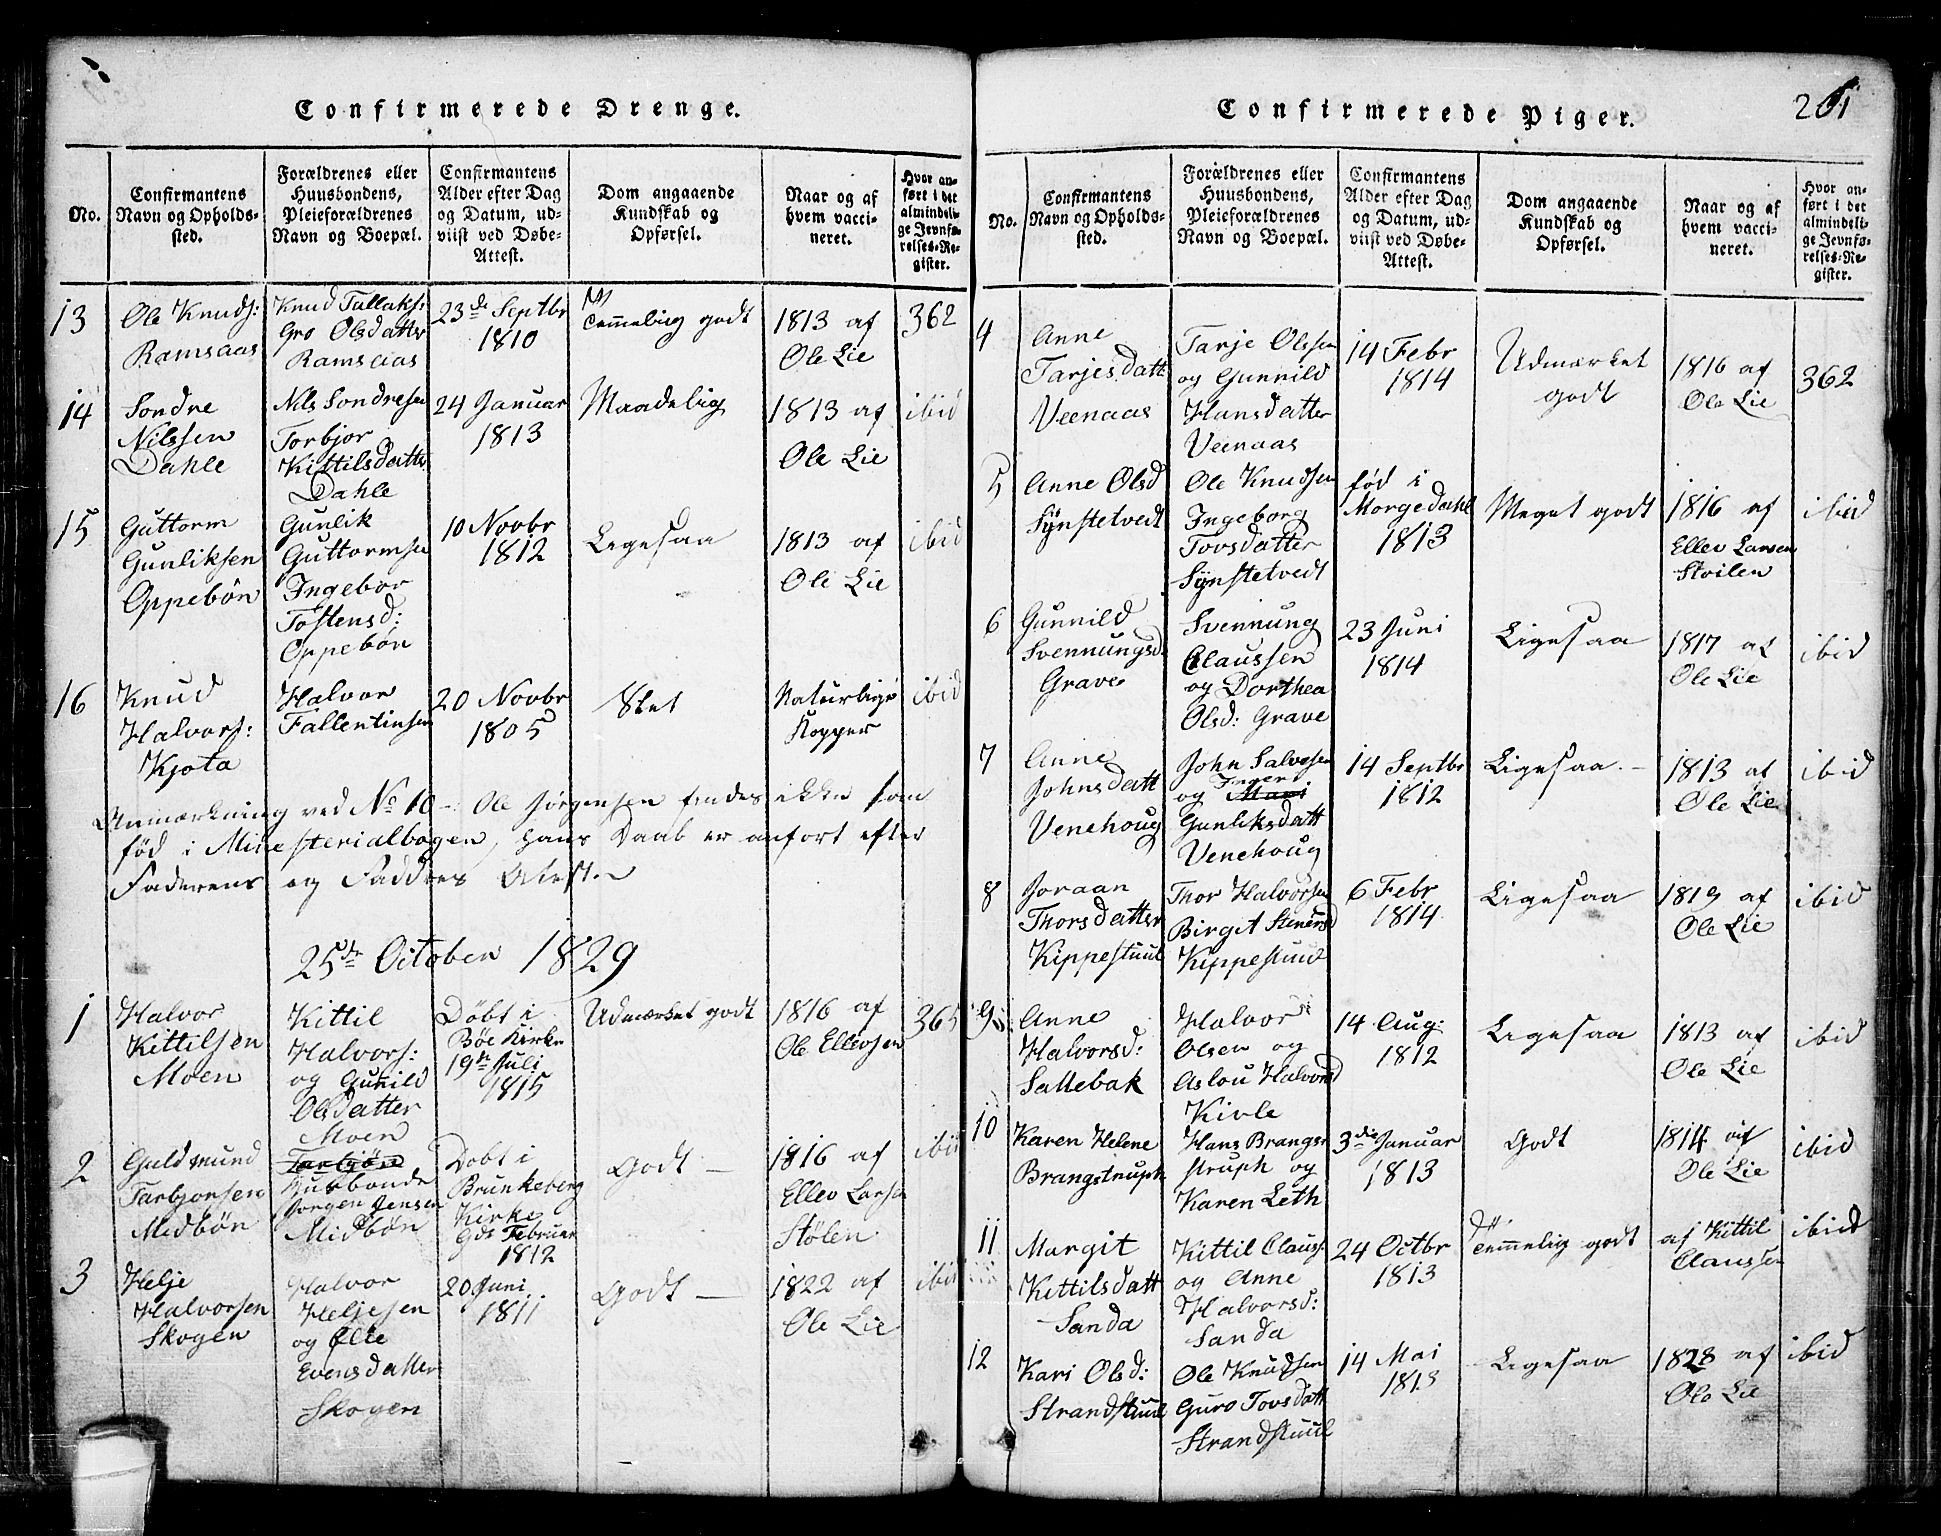 Confirmerede Drenge.
No.
Confirmantens
Navn og Opholds-
sted.
Forældrenes eller
Huusbondens,
Pleieforældrenes
Navn og Boepæl.
Confirmantens
Alder efter Dag
og Datum, ud-
viist ved Døbe-
Attest.
Dom angaaende
Kundskab og
Opførsel.
Naar og af
hvem vacci-
neret.
Hvor an-
ført i det
almindeli-
ge Jevnfø-
relses-Re-
gister.
13
Ole Knuds:
Ramsaas
Knud Tallaks:
Gro Olsdatter
Ramsaas
23de Septbr
1810
Temmelig godt
1813 af
Ole Lie
362
14
Sondre
Nilssen
Dahle
Nils Sondresen
Torbjor
Kittilsdatter
Dahle
24 Januar
1813
Maadelig
1813 af
Ole Lie
ibid
15
Guttorm
Gunliksen
Oppebøn
Gunlik
Guttormsen
Ingebor
Tostensd:
Oppebøn
10 Novbr
1812
Ligesaa
1813 af
Ole Lie
ibid
16
Knud
Halvors:
Kjota
Halvor
Fallentinsen
20 Novbr
1805
Slet
Naturlige
Kopper
ibid
Anmærkning ved No 10 - Ole Jørgensen findes ikke som
fød i Ministerialbogen, hans Daab er anfort efter
Faderens og Faddres
25de October 1829
1
Halvor
Kittilsen
Moen
Kittil
Halvors:
og Gunild
Olsdatter
Moen
Døbt i
Bøe Kirke
19de Juli
1815
Udmærket godt
1816 af
Ole Ellevsen
365
2
Guldmund
Tarbjonsen
Midbøn
Tarbjøn
Husbonde
Jorgen Jensen
Midbøn
Dobt i
Brunkeberg
Kirke
Februar
1812
Godt -
1816 af
Ellev Larsen
Stølen
ibid
3
Helje
Halvorsen
Skogen
Halvor
Heljesen
og
Evensdatter
Skogen
20 Juni
1811
Godt -
1822 af
Ole Lie
ibid
Confirmerede Piger.
201
No.
Confirmantens
Navn og Opholds-
sted.
Forældrenes eller
Huusbondens,
Pleieforældrenes
Navn og Boepæl.
Confirmantens
Alder efter Dag
og Datum, ud-
viist ved Døbe-
Attest.
Dom angaaende
Kundskab og
Opførsel.
Naar og af
hvem vacci-
neret.
Hvor an-
ført i det
almindeli-
ge Jevnfø-
relses-Re-
gister.
4
Anne
Tarjesdatt
Veenaas
Tarje Olssen
og Gunnild
Hansdatter
Veenaas
14 Febr
1814
Udmærket
godt
1816 af
Ole Lie
362
5
Anne Olsd
Synstetvedt
Ole Knudsen
Ingeborg
Tovsdatter
Synstetvedt
fød i
Morgedahl
1813
Meget godt
1816 af
Ellev Larsen
Stoilen
ibid
6
Gunnild
Svennungsd.
Grave
Svennung
Claussen
og Dorthea
Olsd: Grave
23 Juni
1814
Ligesaa
1817 af
Ole Lie
ibid
7
Anne
Johnsdatt
Venehoug
John Salvesen
Inger
og Mari
Gunliksdatt
Venehoug
14 Septbr
1812
Ligesaa. -
1813 af
Ole Lie
ibid
8
Joraan
Thorsdatter
Kippestuul
Thor Halvorsen
Birgit Stenersd
Kippestuul
6 Febr
1814
Ligesaa
1819 af
Ole Lie
ibid
9
Anne
Halvorsd:
Sallebak
Halvor
Olsen og
Aslou Halvorsd
Kivle
14 Aug:
1812
Ligesaa
1813 af
Ole Lie
ibid
10
Karen Helene
Brangstruph
Hans Brangs-
struph og
Karen Leth
3die Januar
1813
Godt
1814 af
Ole Lie
ibid
11
Margit
Kittilsdatt
Sanda
Kittil Clauss:
og Anne
Halvorsd:
Sanda
24 Octbr
1813
Temmelig godt
af Kittil
Claussen
ibid
12
Kari Olsd:
Strandstuul
Ole Knudsen
Guro Tovsdatt
Strandstuul
14 Mai
1813
Ligesaa
1828 af
Ole Lie
ibid